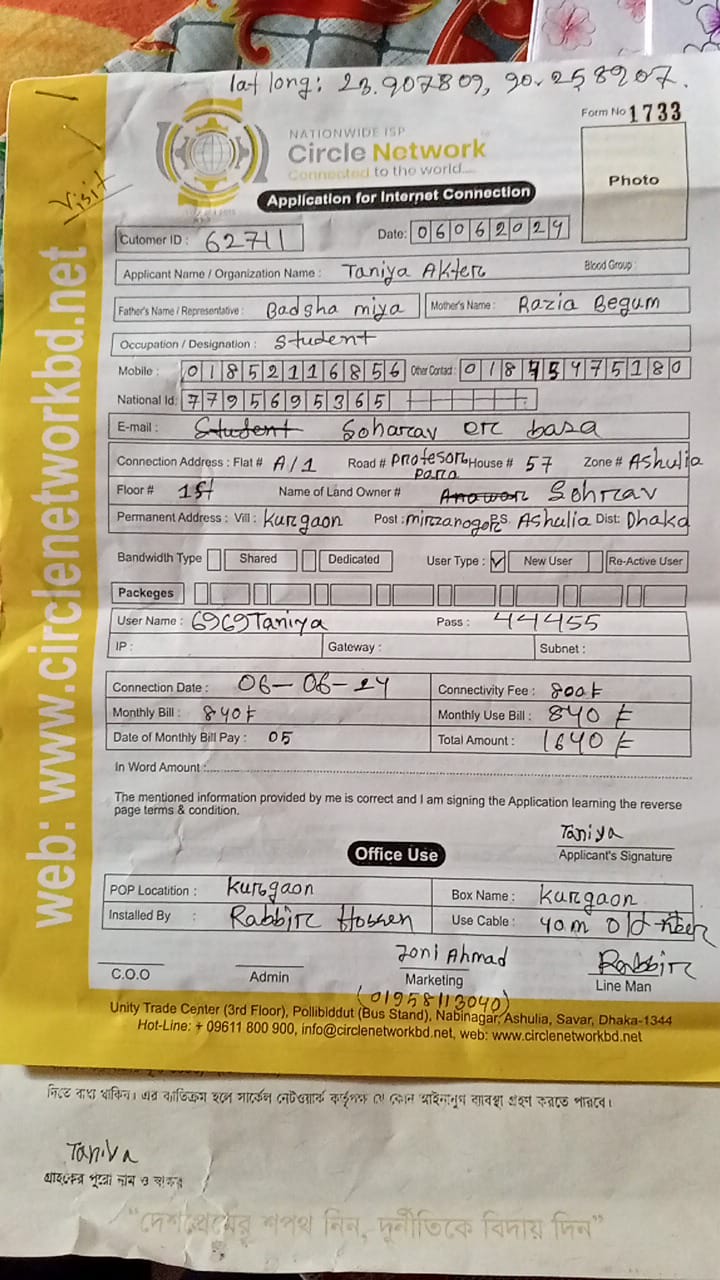 lat long: 23.907809, 90.258907.
Form No 1733
NATIONWIDE ISP
Circle Network
Connected to the world....
Photo
Visit
Application for Internet Connection
Cutomer ID : 62711 Date: 06062024
Applicant Name / Organization Name : Taniya Akter Blood Group :
Father's Name / Representative : Badsha miya Mother's Name : Razia Begum
Occupation / Designation : Student
Mobile : 01852116856 Other Contact : 01845475180
National Id: 7795695365
E-mail : Student Soharav er basa
Connection Address : Flat # A/1 Road # Profesor para House # 57 Zone # Ashulia
Floor # 1st Name of Land Owner # Anowar Sohrav
Permanent Address : Vill : Kurgaon Post : mirzanogor P.S. Ashulia Dist: Dhaka
Bandwidth Type Shared Dedicated User Type : ✓ New User Re-Active User
Packeges
User Name : 6969Taniya Pass : 44455
IP : Gateway : Subnet :
Connection Date : 06-06-24 Connectivity Fee : 800 ৳
Monthly Bill : 840 ৳ Monthly Use Bill : 840 ৳
Date of Monthly Bill Pay : 05 Total Amount : 1640 ৳
In Word Amount :
The mentioned information provided by me is correct and I am signing the Application learning the reverse
page terms & condition.
Taniya
Applicant's Signature
Office Use
POP Locatition : Kurgaon Box Name : Kurgaon
Installed By : Rabbir Hossen Use Cable : 40m Old fiber
Joni Ahmad Rabbir
C.O.O Admin Marketing Line Man
(01958113040)
Unity Trade Center (3rd Floor), Pollibiddut (Bus Stand), Nabinagar, Ashulia, Savar, Dhaka-1344
Hot-Line: + 09611 800 900, info@circlenetworkbd.net, web: www.circlenetworkbd.net
web: www.circlenetworkbd.net
নিতে বাধ্য থাকিব। এর ব্যতিক্রম হলে সার্কেল নেটওয়ার্ক কর্তৃপক্ষ যে কোন আইনানুগ ব্যবস্থা গ্রহণ করতে পারবে।
Taniya
গ্রাহকের পুরো নাম ও স্বাক্ষর
“দেশপ্রেমের শপথ নিন, দুর্নীতিকে বিদায় দিন”